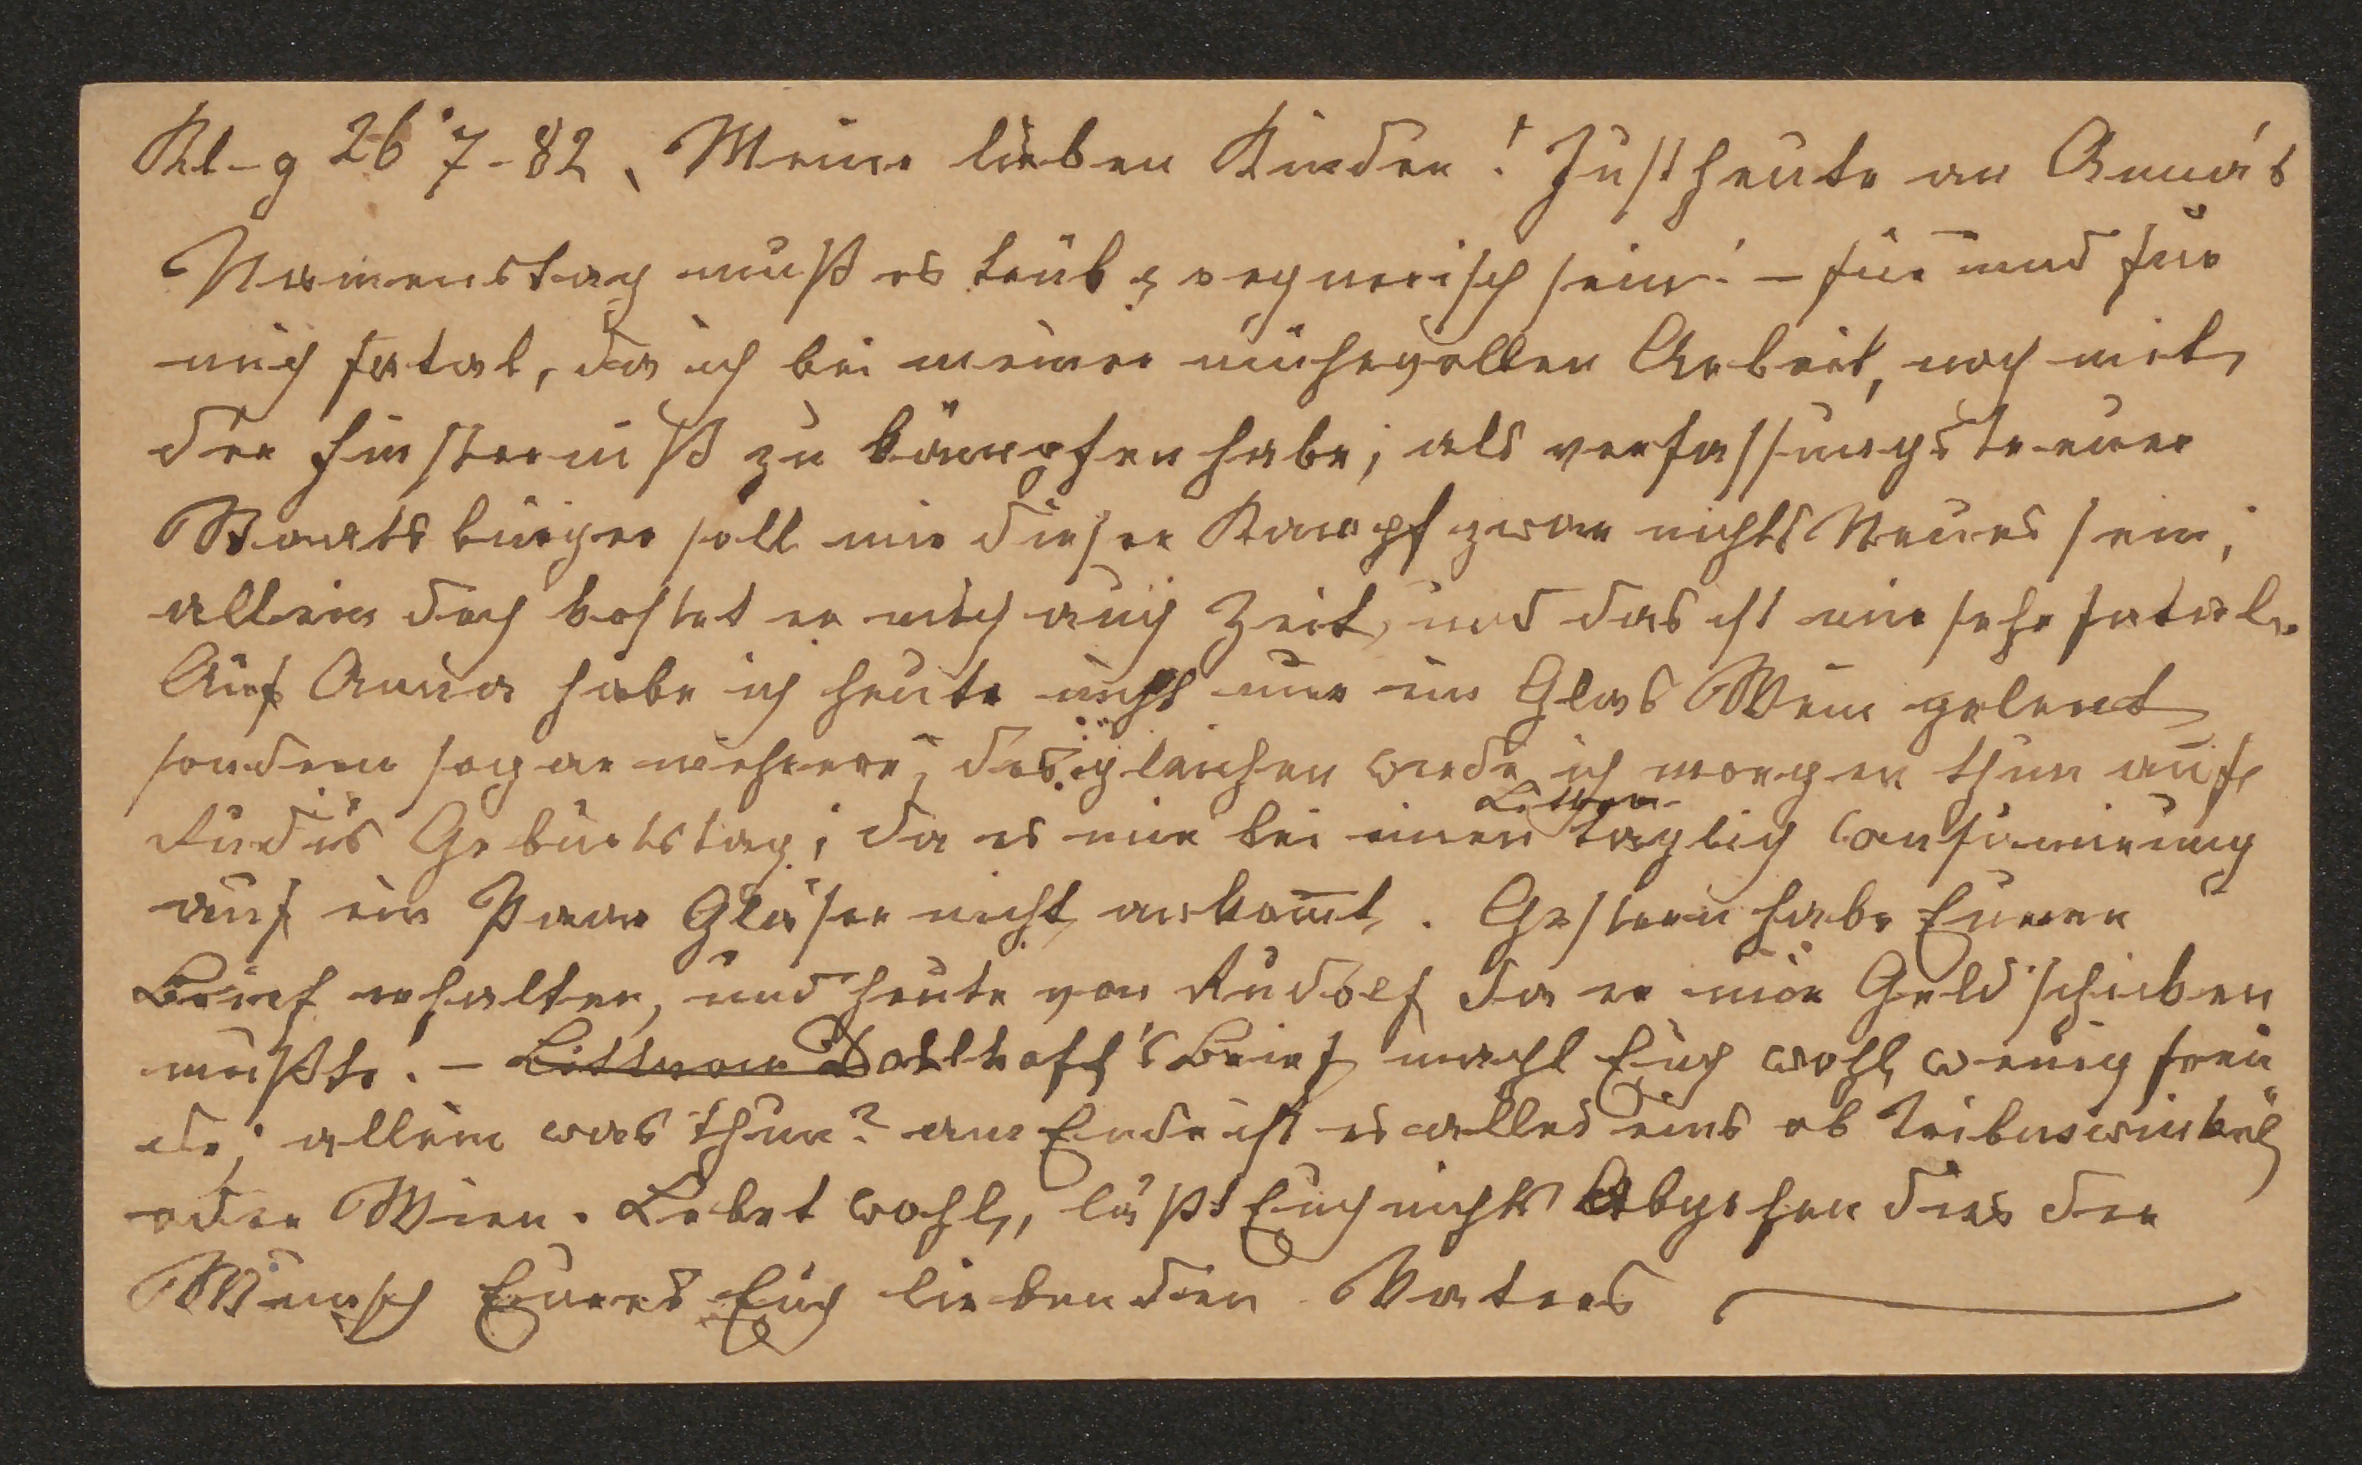 Kl-g 26 7-82, Meine lieben Kinder! Just heute an Anna's
Namenstag muß es trüb & regnerisch sein! – für und für
mich fatal, da ich bei meiner mühevollen Arbeit, noch mit
der Finsterniß zu kämpfen habe; als verfassungstreuer
Staatsbürger soll mir dieser Kampf zwar nichts Neues sein,
allein doch kostet er mich auch Zeit, und das ist mir sehr fatal.
Auf Anna habe ich heute nicht nur ein Glas Wein geleert
sondern sogar mehrere, desgleichen werde ich morgen thun auf
Rudis Geburtstag; da es mir bei einer täglich Consumirung
auf ein Paar Gläser nicht ankomt. Gestern habe Eueren
Brief erhalten, und heute von Rudolf da er mir Geld schicken
mußte. – Doblhoff's Brief macht Euch wohl wenig Freu
de, allein was thun? am Ende ist es alles eins ob Tribuswinkel
oder Wien. Lebet wohl, laßt Euch nichts Abgehen dies der
Wunsch Eueres Euch liebenden Vaters